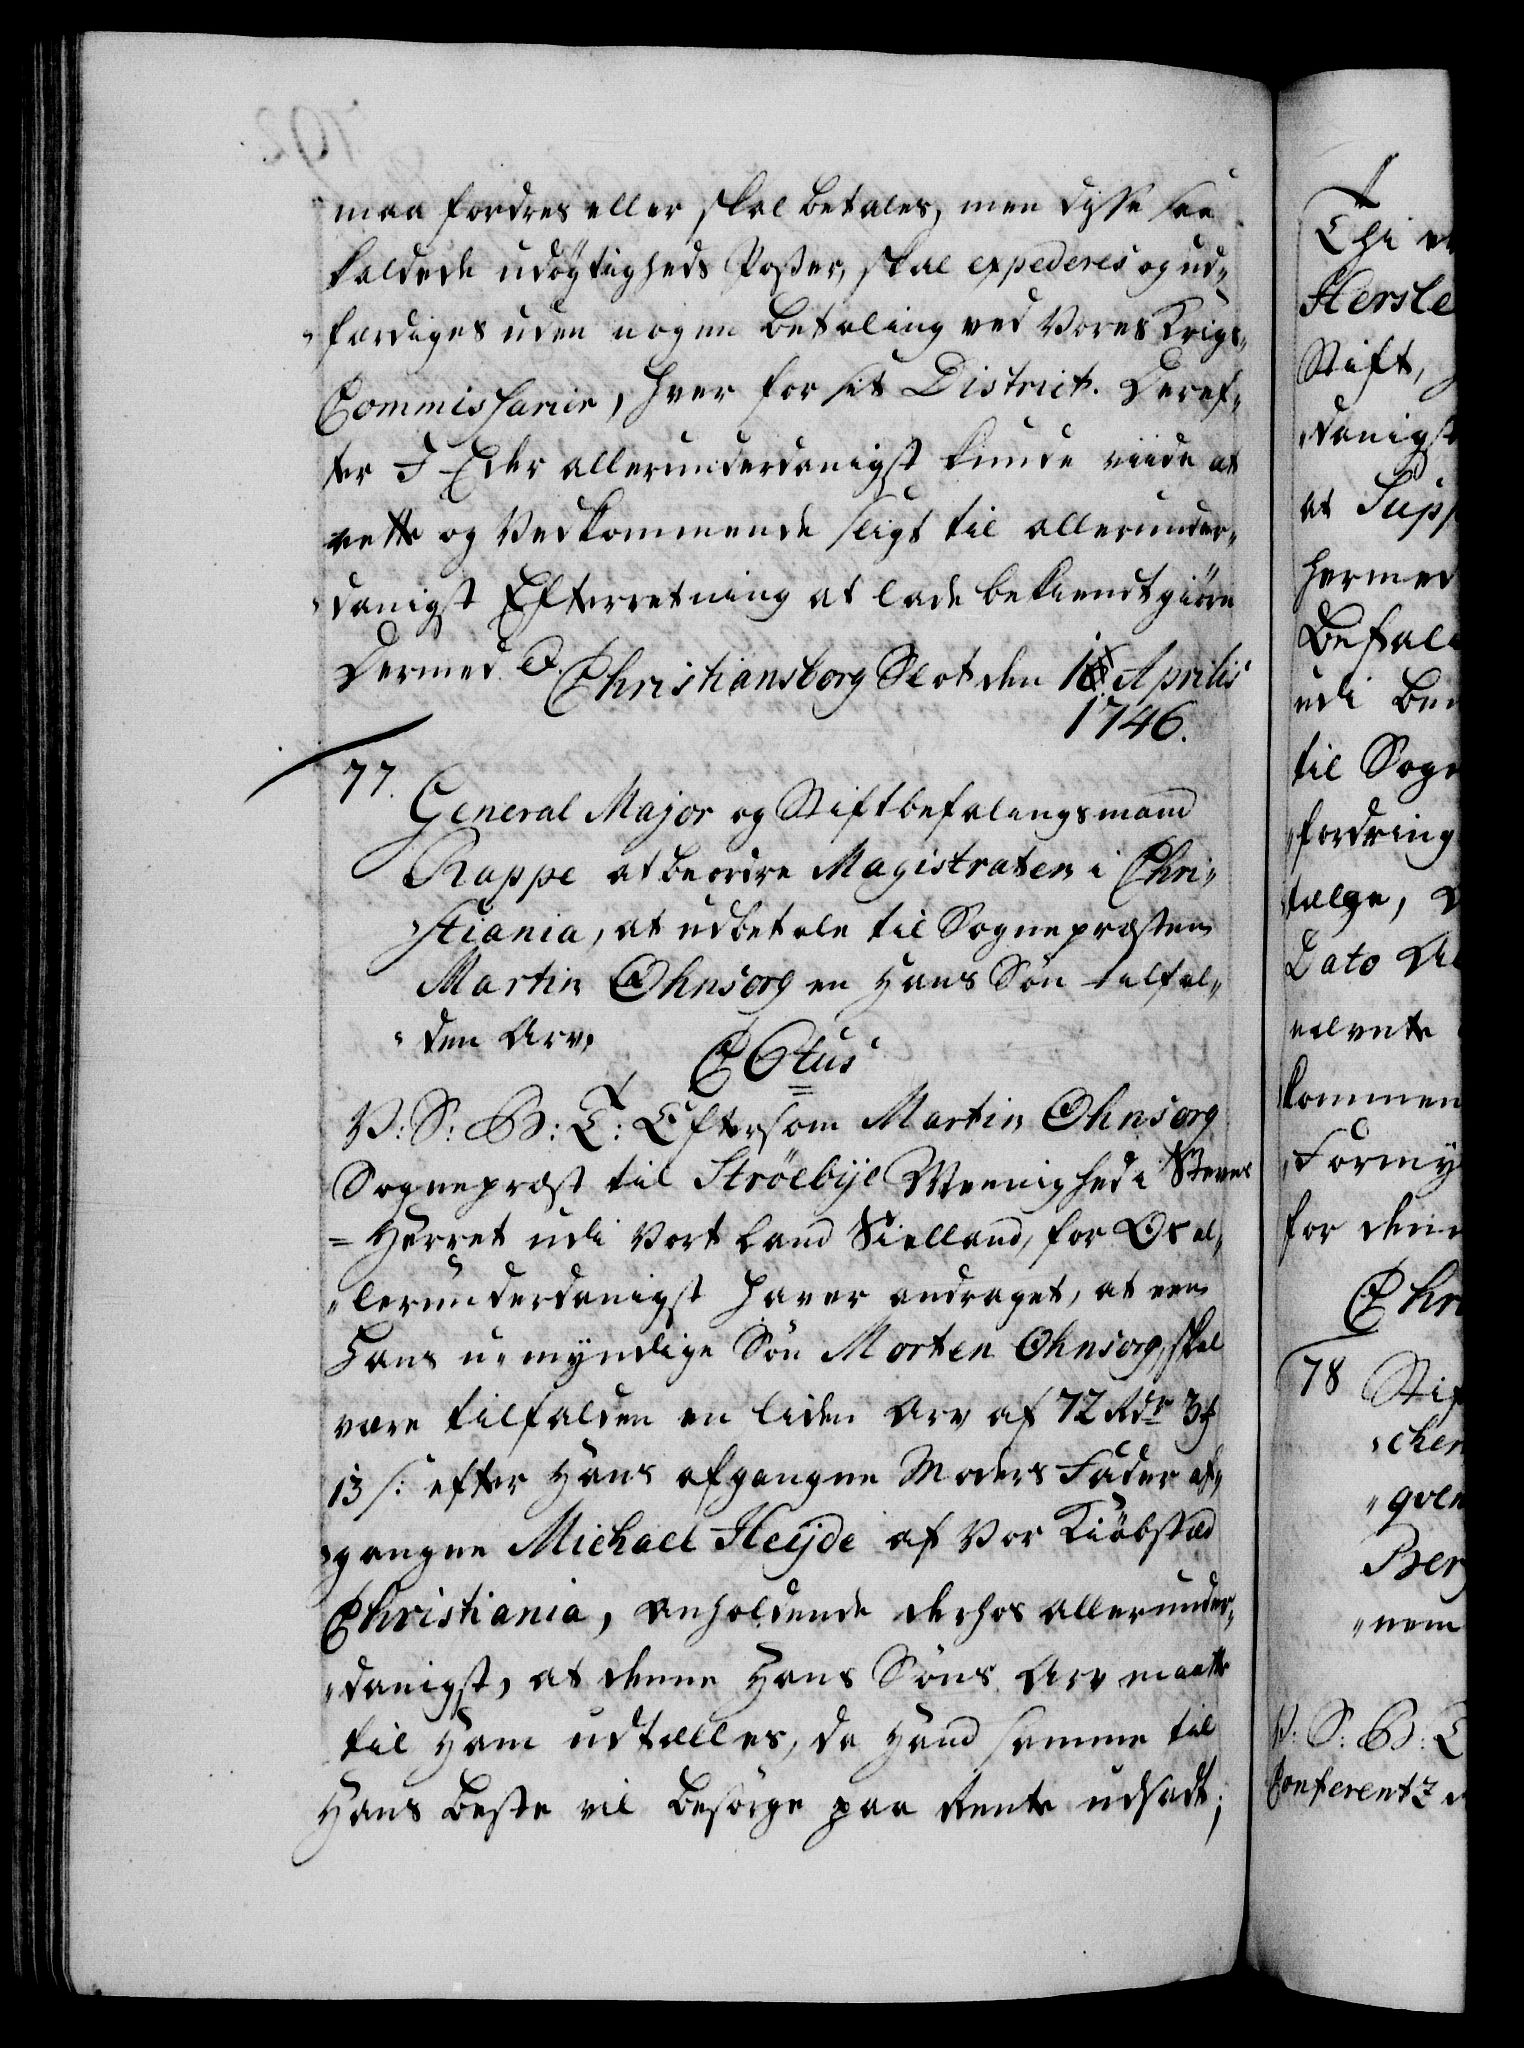 maa fordres eller skal betales, men disse saa
kaldede udøgtigheds Poster, skal expederes og ud-
færdiges uden nogen betaling ved Vores Krigs-
Commissarier, hver for sit District. Deref-
ter I Eder allerunderdanigst kunde viide at
rette og Vedkommende sligt til allerunder-
danigst Efterretning at lade bekiendtgiøre
Dermed &. Christiansborg Slot den Aprilis
1746.
77. General Major og Stiftbefalingsmand
Rappe at beordre Magistraten i Chri-
stiania, at udbetale til Sognepræsten
Martin Ohnsorg en Hans Søn tilfal-
den Arv,
V: S: G: T: Eftersom Martin Ohnsorg
Sognepræst til Ströebÿe Meenighed i Stevns
Herret udi Vort Land Sielland, for Os al-
lerunderdanigst haver andraget, at een
Hans u-myndige Søn Morten Ohnsorg, skal
være tilfalden en liden Arv af 72 Rdr 3 #
13 s: efter Hans afgangne Moders Fader af-
gangne Michael Heÿde af Vor Kiøbstæd
Christiania, anholdende derhos allerunder-
danigst, at denne Hans Søns Arv maatte
til Ham udtælles, da Hand samme til
Hans beste vil besørge paa Rente udsadt;
Thi
Herste
Stift,
danigst
at Supp
hermed
Befale
udi
til Sog
fordring
tælge,
Dato
kommen
Formy
for
Chri
78 Stif
chen
gven
Ber
nem
V: S: G: T
Conferentz